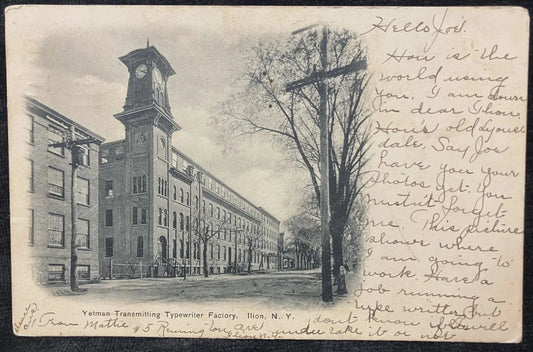 Hello Joe'
How is the
world using
you. I am down
in dear Ilion.
How's old Lyons
dale. Say Joe
have you your
Photos yet. You
mustn't forget
me. This picture
shows where
I am going to
work. Have a
job running a
type writer, but
don't know if I will
under take it or not
Yetman Transmitting Typewriter Factory. Ilion, N. Y.
From Mattie